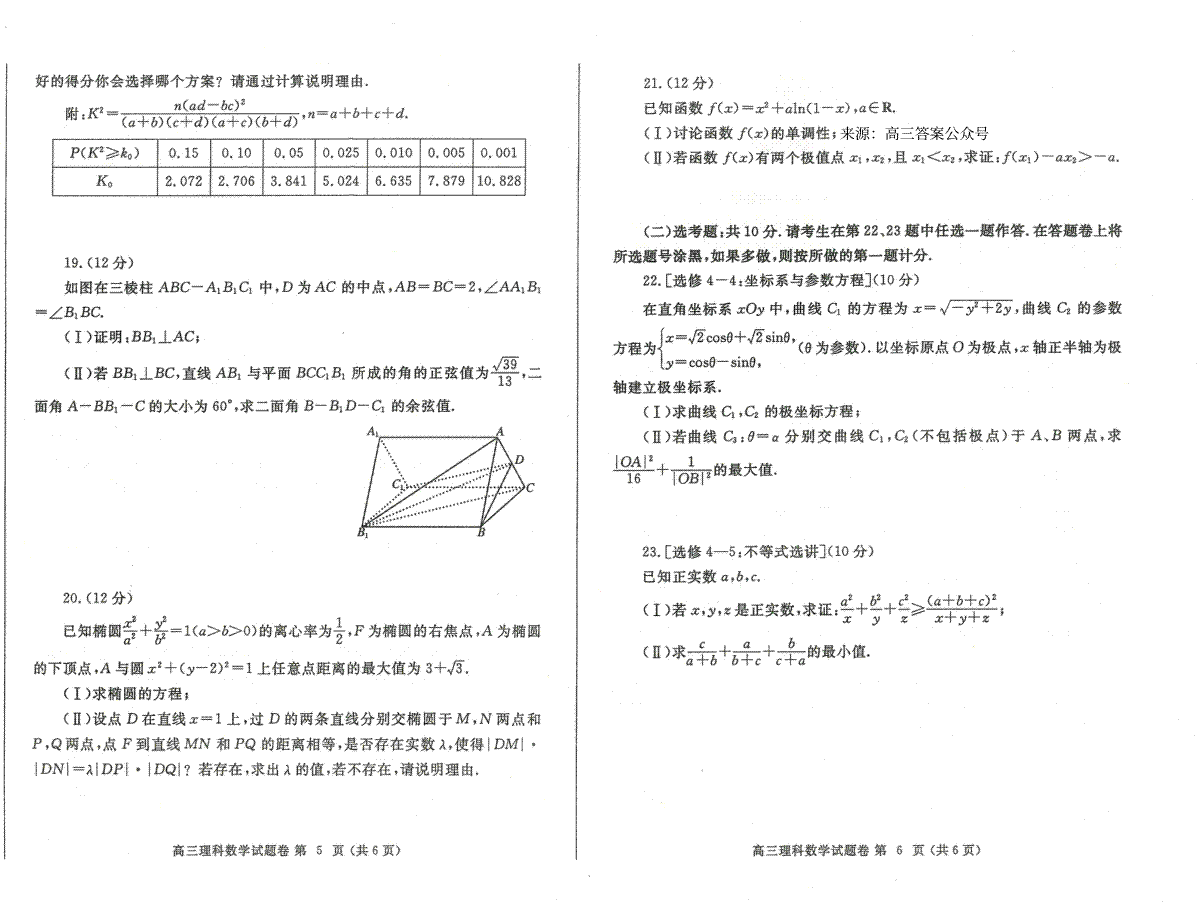 好的得分你会选择哪个方案？请通过计算说明理由.
附:K²=n(ad-bc)²/((a+b)(c+d)(a+c)(b+d)),n=a+b+c+d.
P(K²≥k₀) 0.15 0.10 0.05 0.025 0.010 0.005 0.001
K₀ 2.072 2.706 3.841 5.024 6.635 7.879 10.828
19.(12分)
如图在三棱柱 ABC-A₁B₁C₁ 中,D为AC的中点,AB=BC=2,∠AA₁B₁
=∠B₁BC.
(Ⅰ)证明:BB₁⊥AC;
(Ⅱ)若 BB₁⊥BC,直线 AB₁ 与平面 BCC₁B₁ 所成的角的正弦值为√39/13,二
面角A-BB₁-C的大小为60°,求二面角B-B₁D-C₁的余弦值.
A₁
A
D
C₁
C
B₁
B
20.(12分)
已知椭圆x²/a²+y²/b²=1(a>b>0)的离心率为1/2,F为椭圆的右焦点,A为椭圆
的下顶点,A与圆x²+(y-2)²=1上任意点距离的最大值为3+√3.
(Ⅰ)求椭圆的方程;
(Ⅱ)设点D在直线x=1上,过D的两条直线分别交椭圆于M,N两点和
P,Q两点,点F到直线MN和PQ的距离相等,是否存在实数λ,使得|DM|·
|DN|=λ|DP|·|DQ|？若存在,求出λ的值,若不存在,请说明理由.
高三理科数学试题卷 第 5 页(共6页)
21.(12分)
已知函数 f(x)=x²+aln(1-x),a∈R.
(Ⅰ)讨论函数 f(x)的单调性;来源：高三答案公众号
(Ⅱ)若函数 f(x)有两个极值点 x₁,x₂,且 x₁<x₂,求证:f(x₁)-ax₂>-a.
(二)选考题:共10分.请考生在第22、23题中任选一题作答.在答题卷上将
所选题号涂黑,如果多做,则按所做的第一题计分.
22.[选修4-4:坐标系与参数方程](10分)
在直角坐标系 xOy 中,曲线 C₁ 的方程为 x=√(-y²+2y),曲线 C₂ 的参数
方程为{x=√2cosθ+√2sinθ, y=cosθ-sinθ,(θ为参数).以坐标原点O为极点,x轴正半轴为极
轴建立极坐标系.
(Ⅰ)求曲线 C₁,C₂ 的极坐标方程;
(Ⅱ)若曲线 C₃:θ=α 分别交曲线 C₁,C₂(不包括极点)于 A、B 两点,求
|OA|²/16+1/|OB|²的最大值.
23.[选修4-5:不等式选讲](10分)
已知正实数a,b,c.
(Ⅰ)若x,y,z是正实数,求证:a²/x+b²/y+c²/z≥(a+b+c)²/(x+y+z);
(Ⅱ)求c/(a+b)+a/(b+c)+b/(c+a)的最小值.
高三理科数学试题卷 第 6 页(共6页)